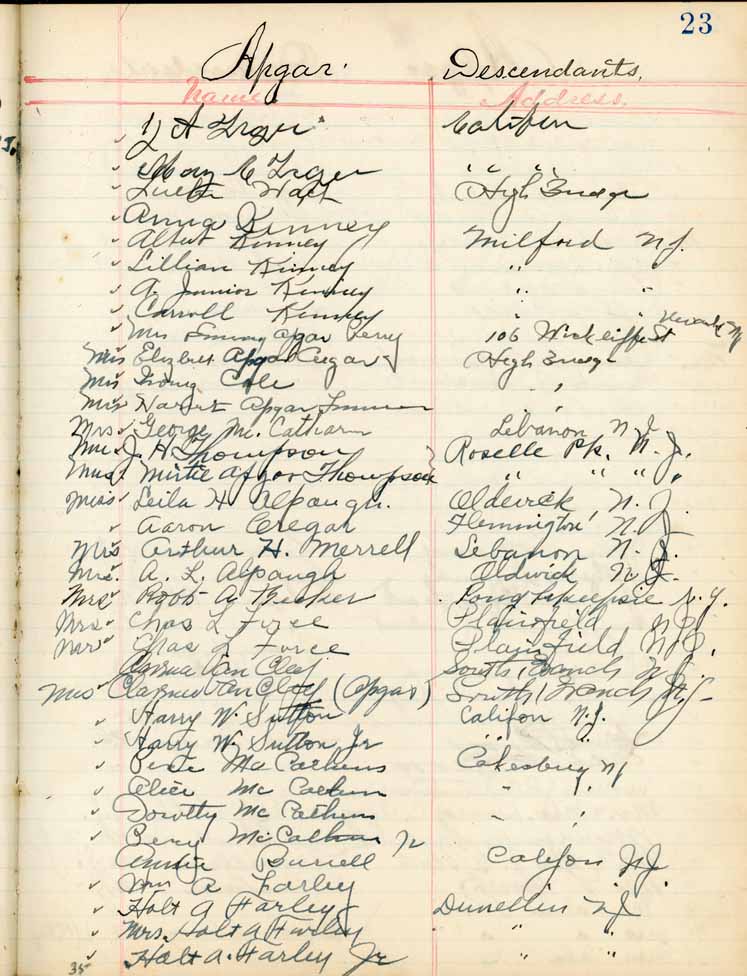 23
Apgar. Descendants.
Name Address.
A Califon
Mary C " "
Luella High Bridge
Anna Kinney
Albert Kinney Milford N.J.
Lillian Kinney "
A. Junior Kinney " "
Carroll Kinney "
Mrs Apgar Perry 106 Wickliffe St Newark NJ
Mrs Apgar High Bridge
Mrs Cole "
Mrs Apgar "
Mrs. George Mc. Cathern Lebanon N J.
J. H Thompson Roselle Pk. N. J.
Mrs. Mirtie Apgar Thompson " " " "
Miss Leila H Alpaugh. Oldwick, N. J.
Aaron Cregar Flemington N.J.
Mrs Arthur H. Merrell Lebanon N. J.
Mrs. A. L. Alpaugh Oldwick N J.
Mrs Robt A Poughkeepsie N.Y.
Mrs Chas L Force Plainfield NJ
Chas L Force Plainfield N.J.
Van Cleef South Branch N J
Mrs Van Cleef (Apgar) South Branch N.J.
Harry W. Sutton Califon N.J.
Harry W. Sutton Jr " "
Mc Cathern Cokesbury NJ
Alice Mc "
Dorothy Mc Cathern " "
Percy Mc Jr
Annie Burrell Califon N.J.
Wm R Farley
Holt A Farley Dunellen NJ
Mrs. Holt A Farley " " "
35 Holt A. Farley Jr " "